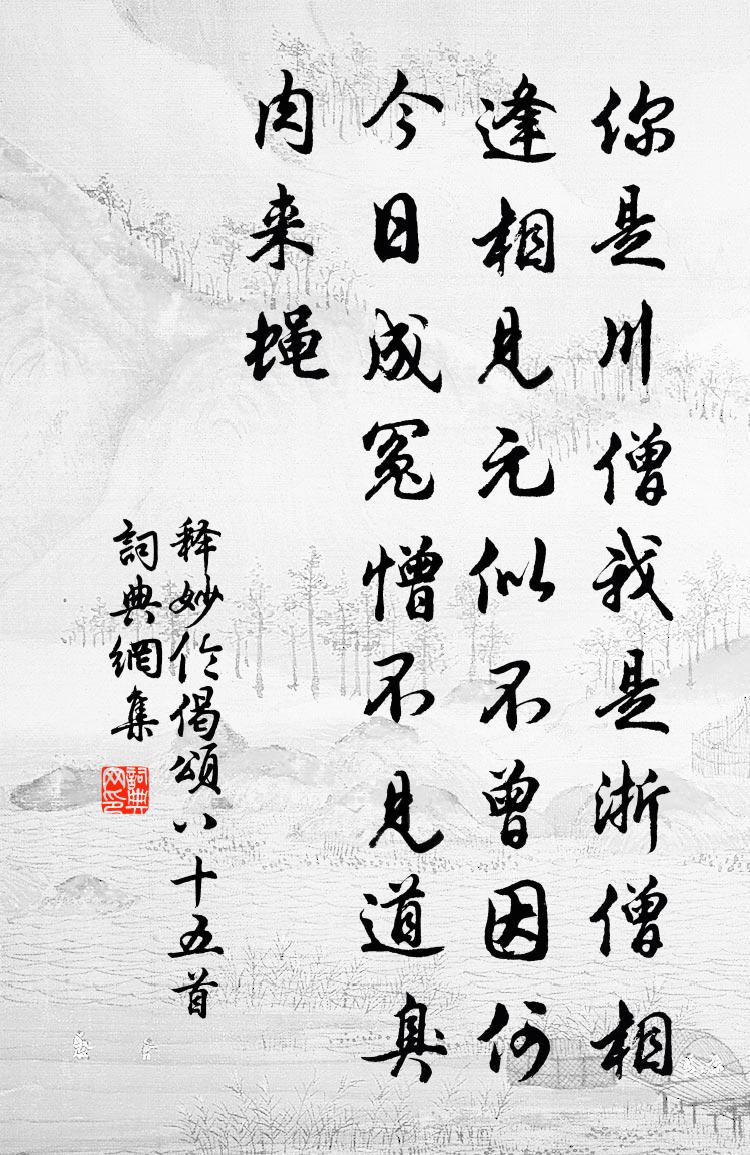 你是川僧我是浙僧相
逢相見元似不曾因何
今日成冤憎不見道臭
肉来蝇
释妙伦偈頌八十五首
詞典網集
詞典网印